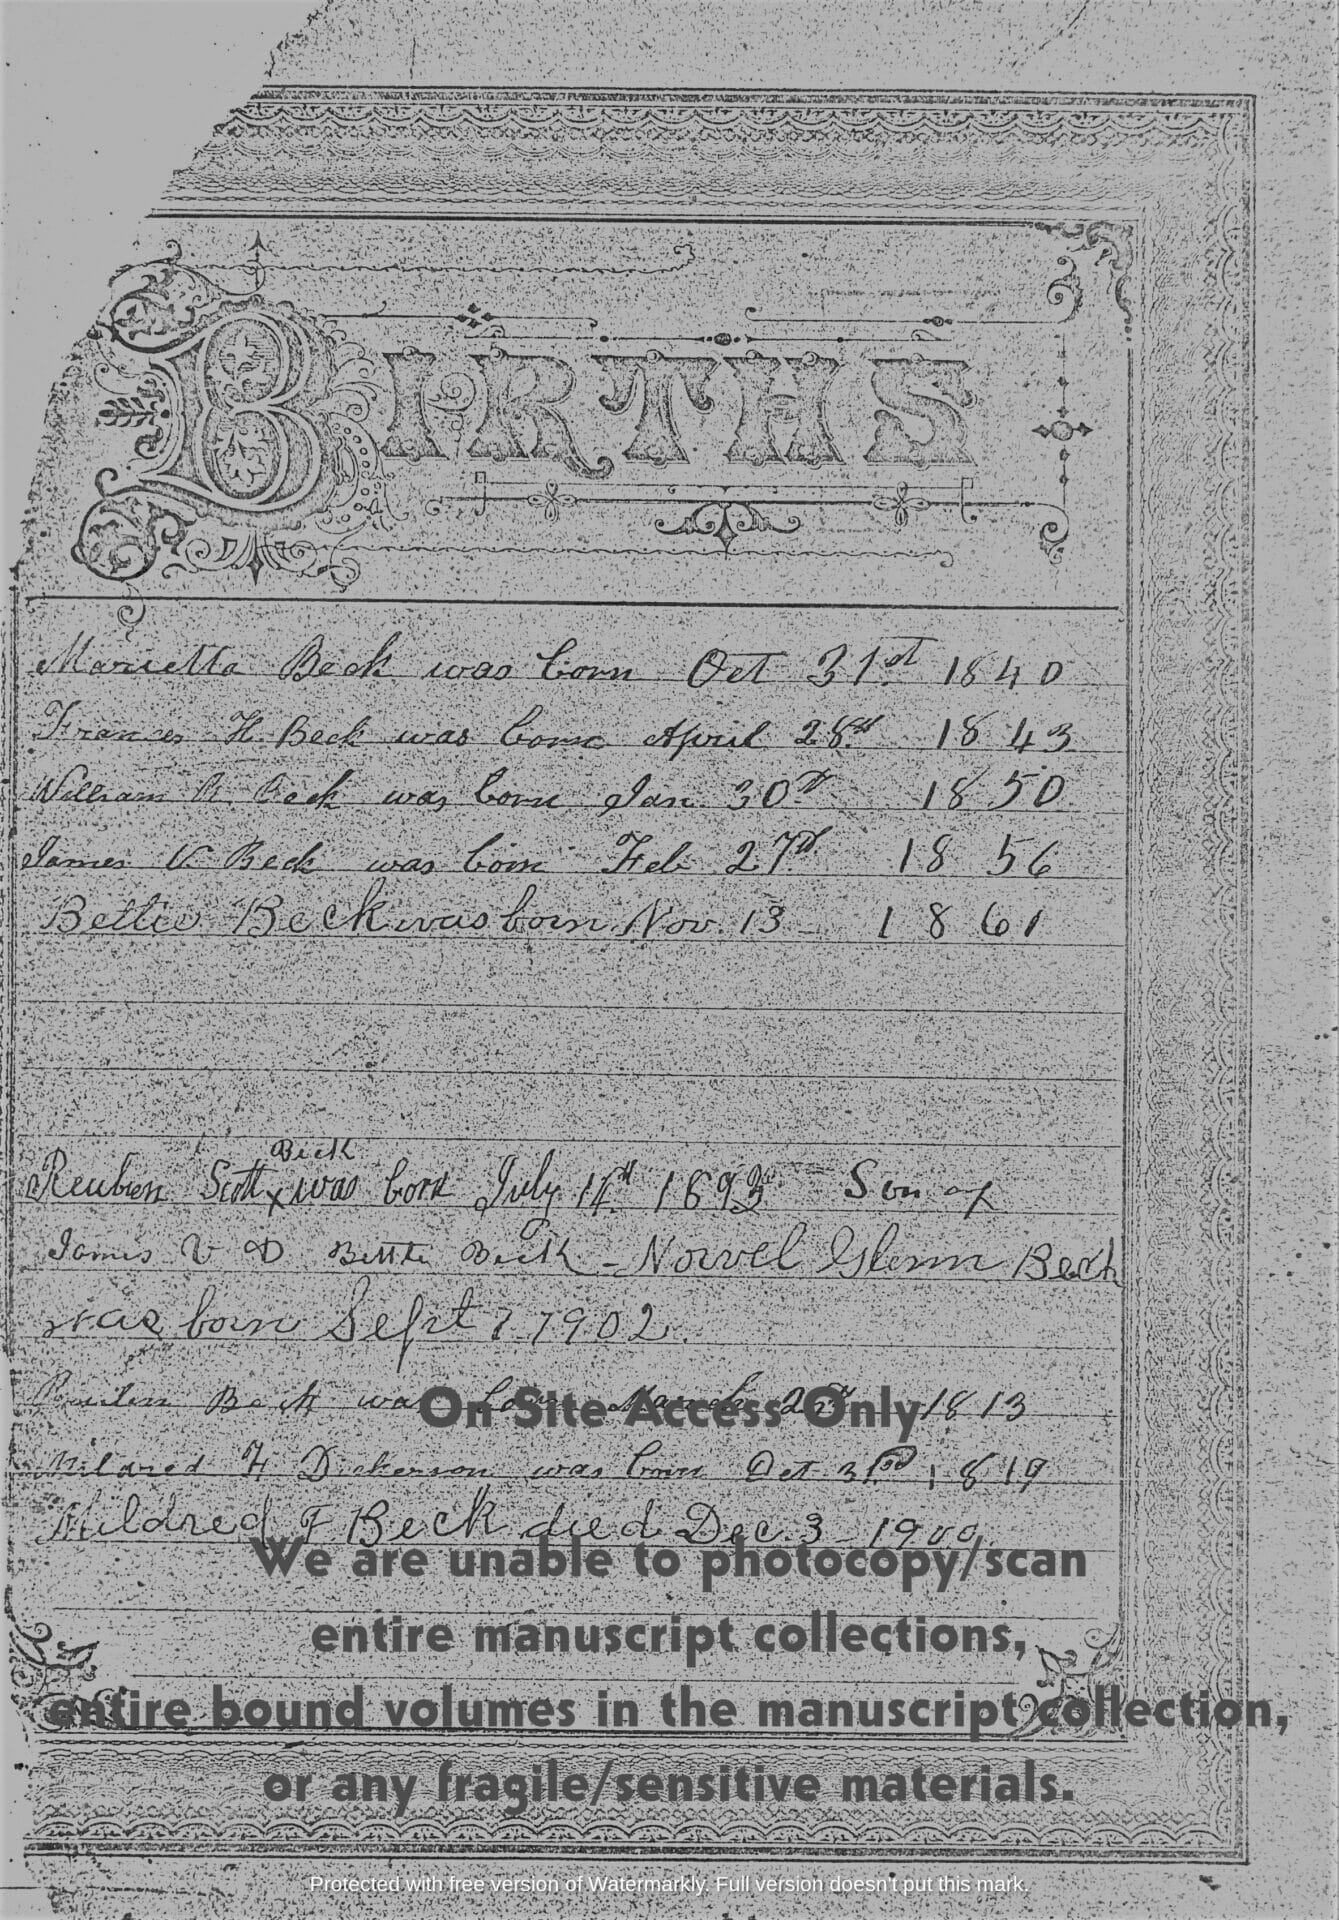 BIRTHS
Marietta Beck was born Oct 31st 1840
Frances H. Beck was born April 28th 1843
William R. Beck was born Jan. 30th 1850
James V Beck was born Feb 27th 1856
Bettie Beck was born Nov. 13 - 1861
Beck
Reuben Scott x was born July 1893 - Son of
James V & Bettie Beck - Norvel Glenn Beck
was born Sept 7 1902.
Reuben Beck was born March 1813
Mildred F Dickerson was born Oct 1819
Mildred F Beck died Dec. 3 - 1900.
On Site Access Only
We are unable to photocopy/scan
entire manuscript collections,
entire bound volumes in the manuscript collection,
or any fragile/sensitive materials.
Protected with free version of Watermarkly. Full version doesn't put this mark.